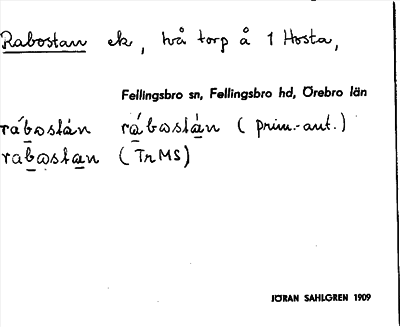 Rabostan ek, två torp å 1 Hosta,
Fellingsbro sn, Fellingsbro hd, Örebro län
rábostán rábostán (prim.-aut.)
rabostan (TrMS)
JÖRAN SAHLGREN 1909